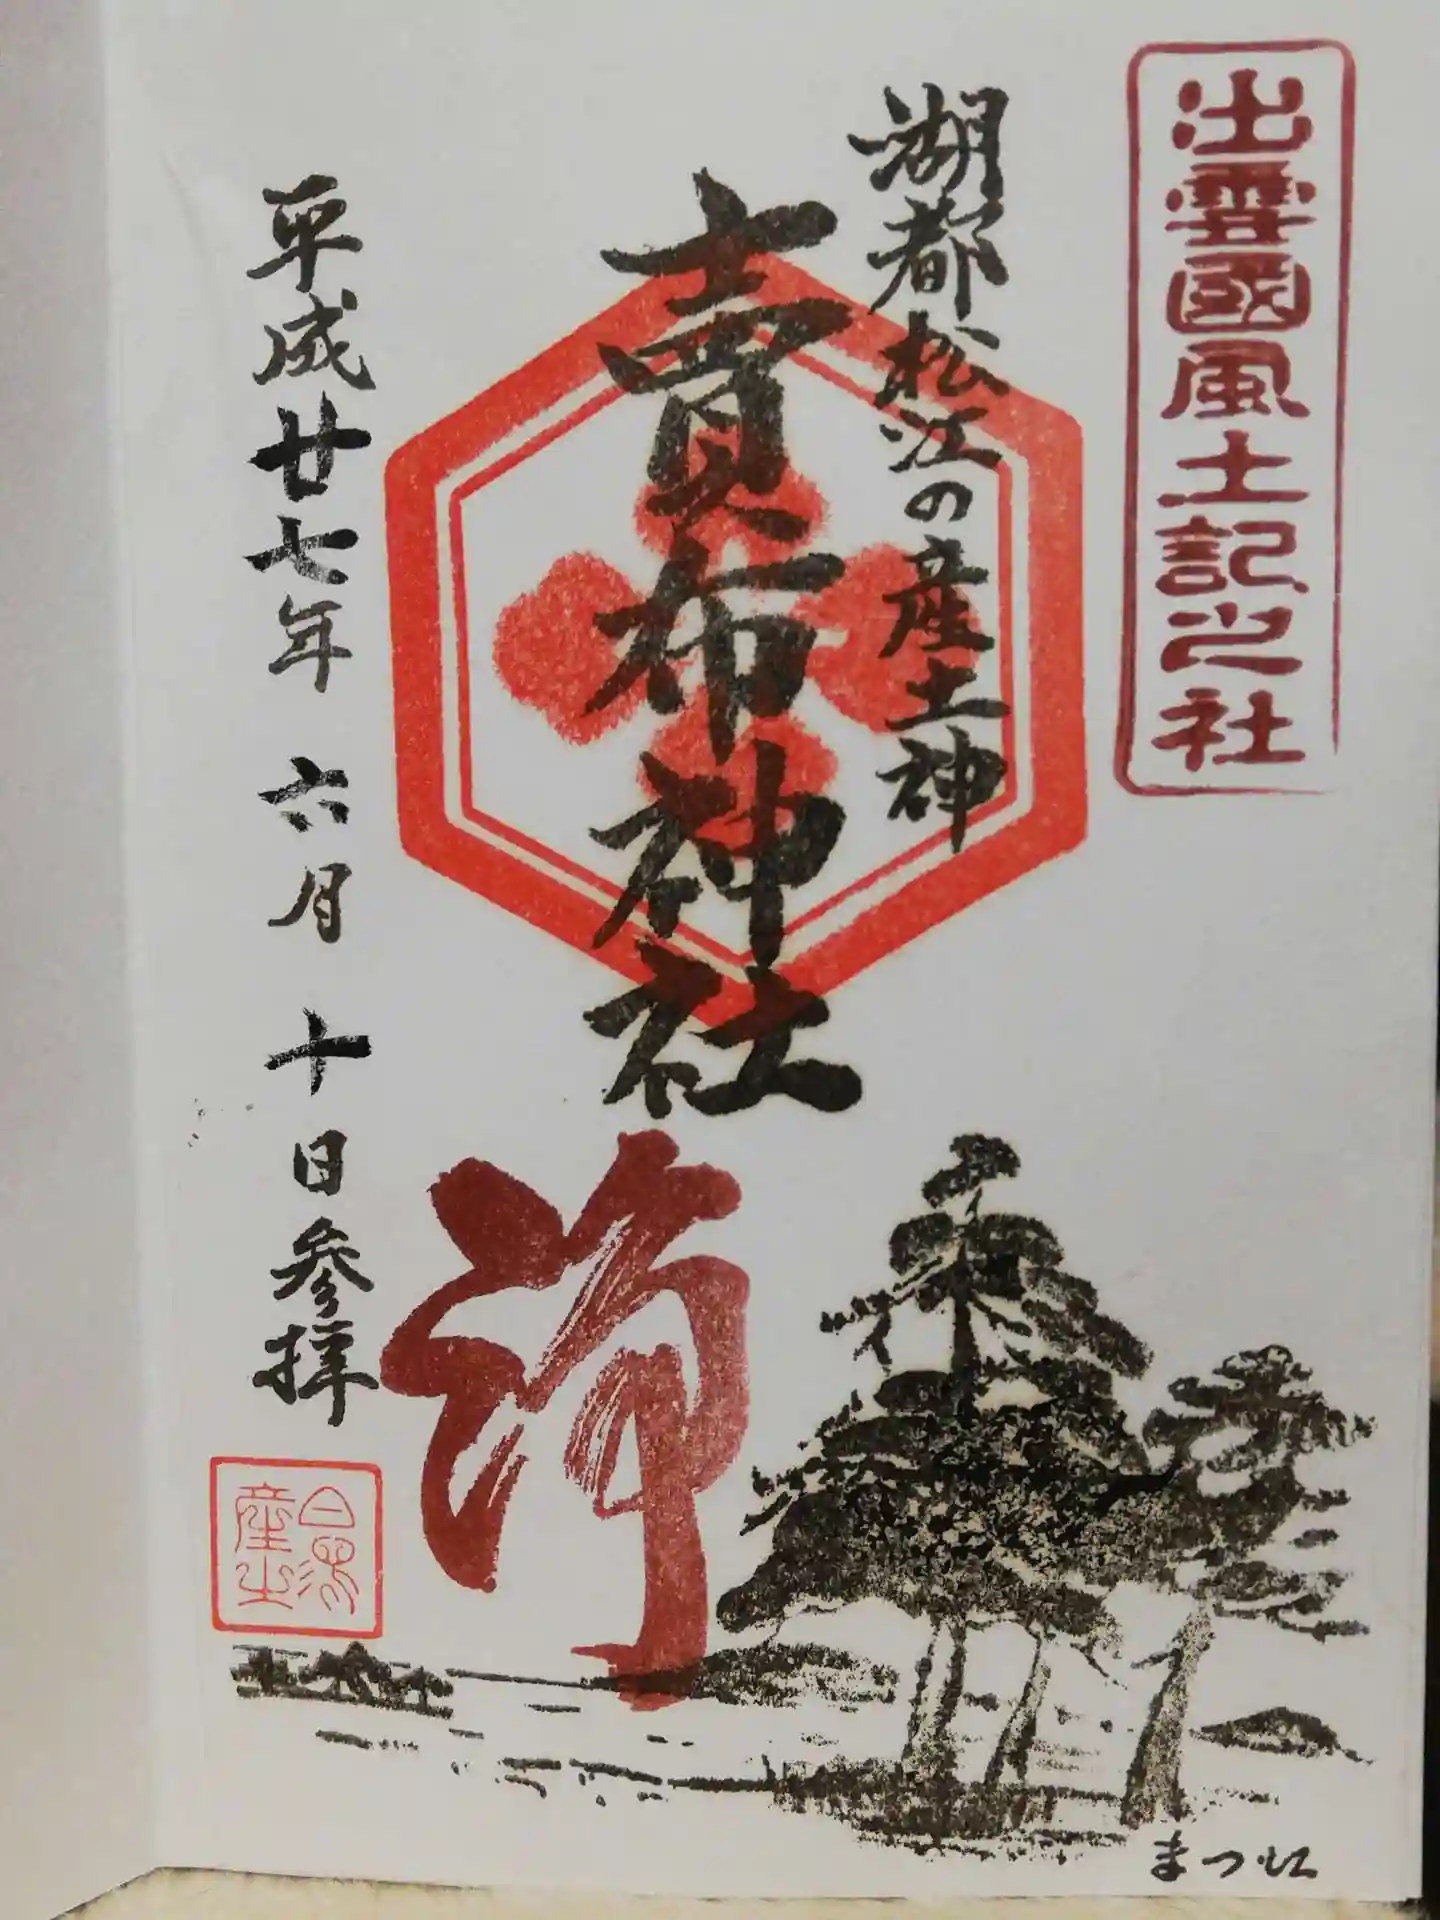 出雲國風土記之社
湖都松江の産土神
賣布神社
平成廿七年 六月 十日参拝
まつ江